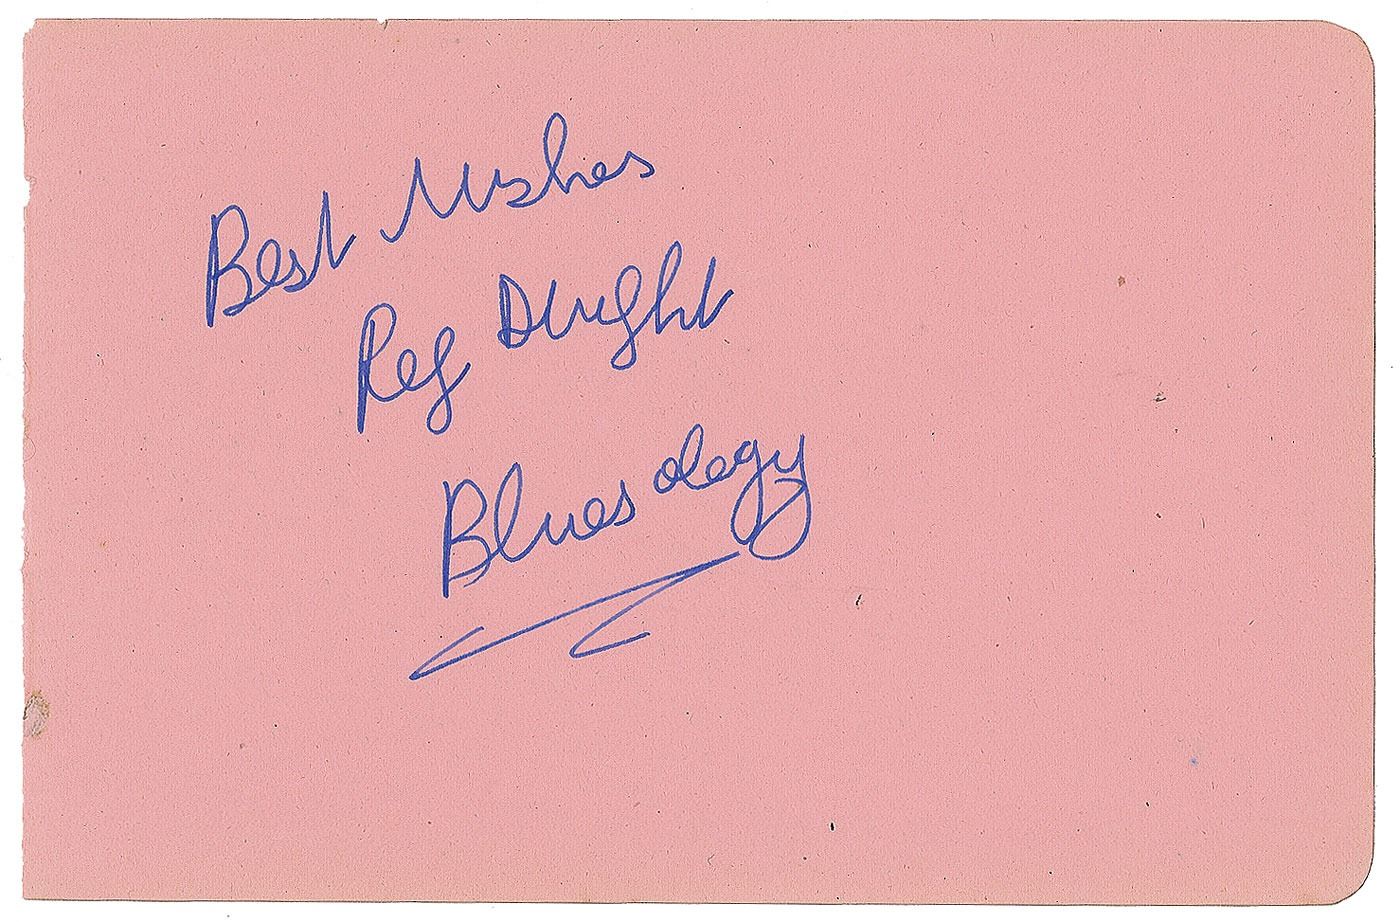 Best Wishes
Reg Dwight
Bluesology